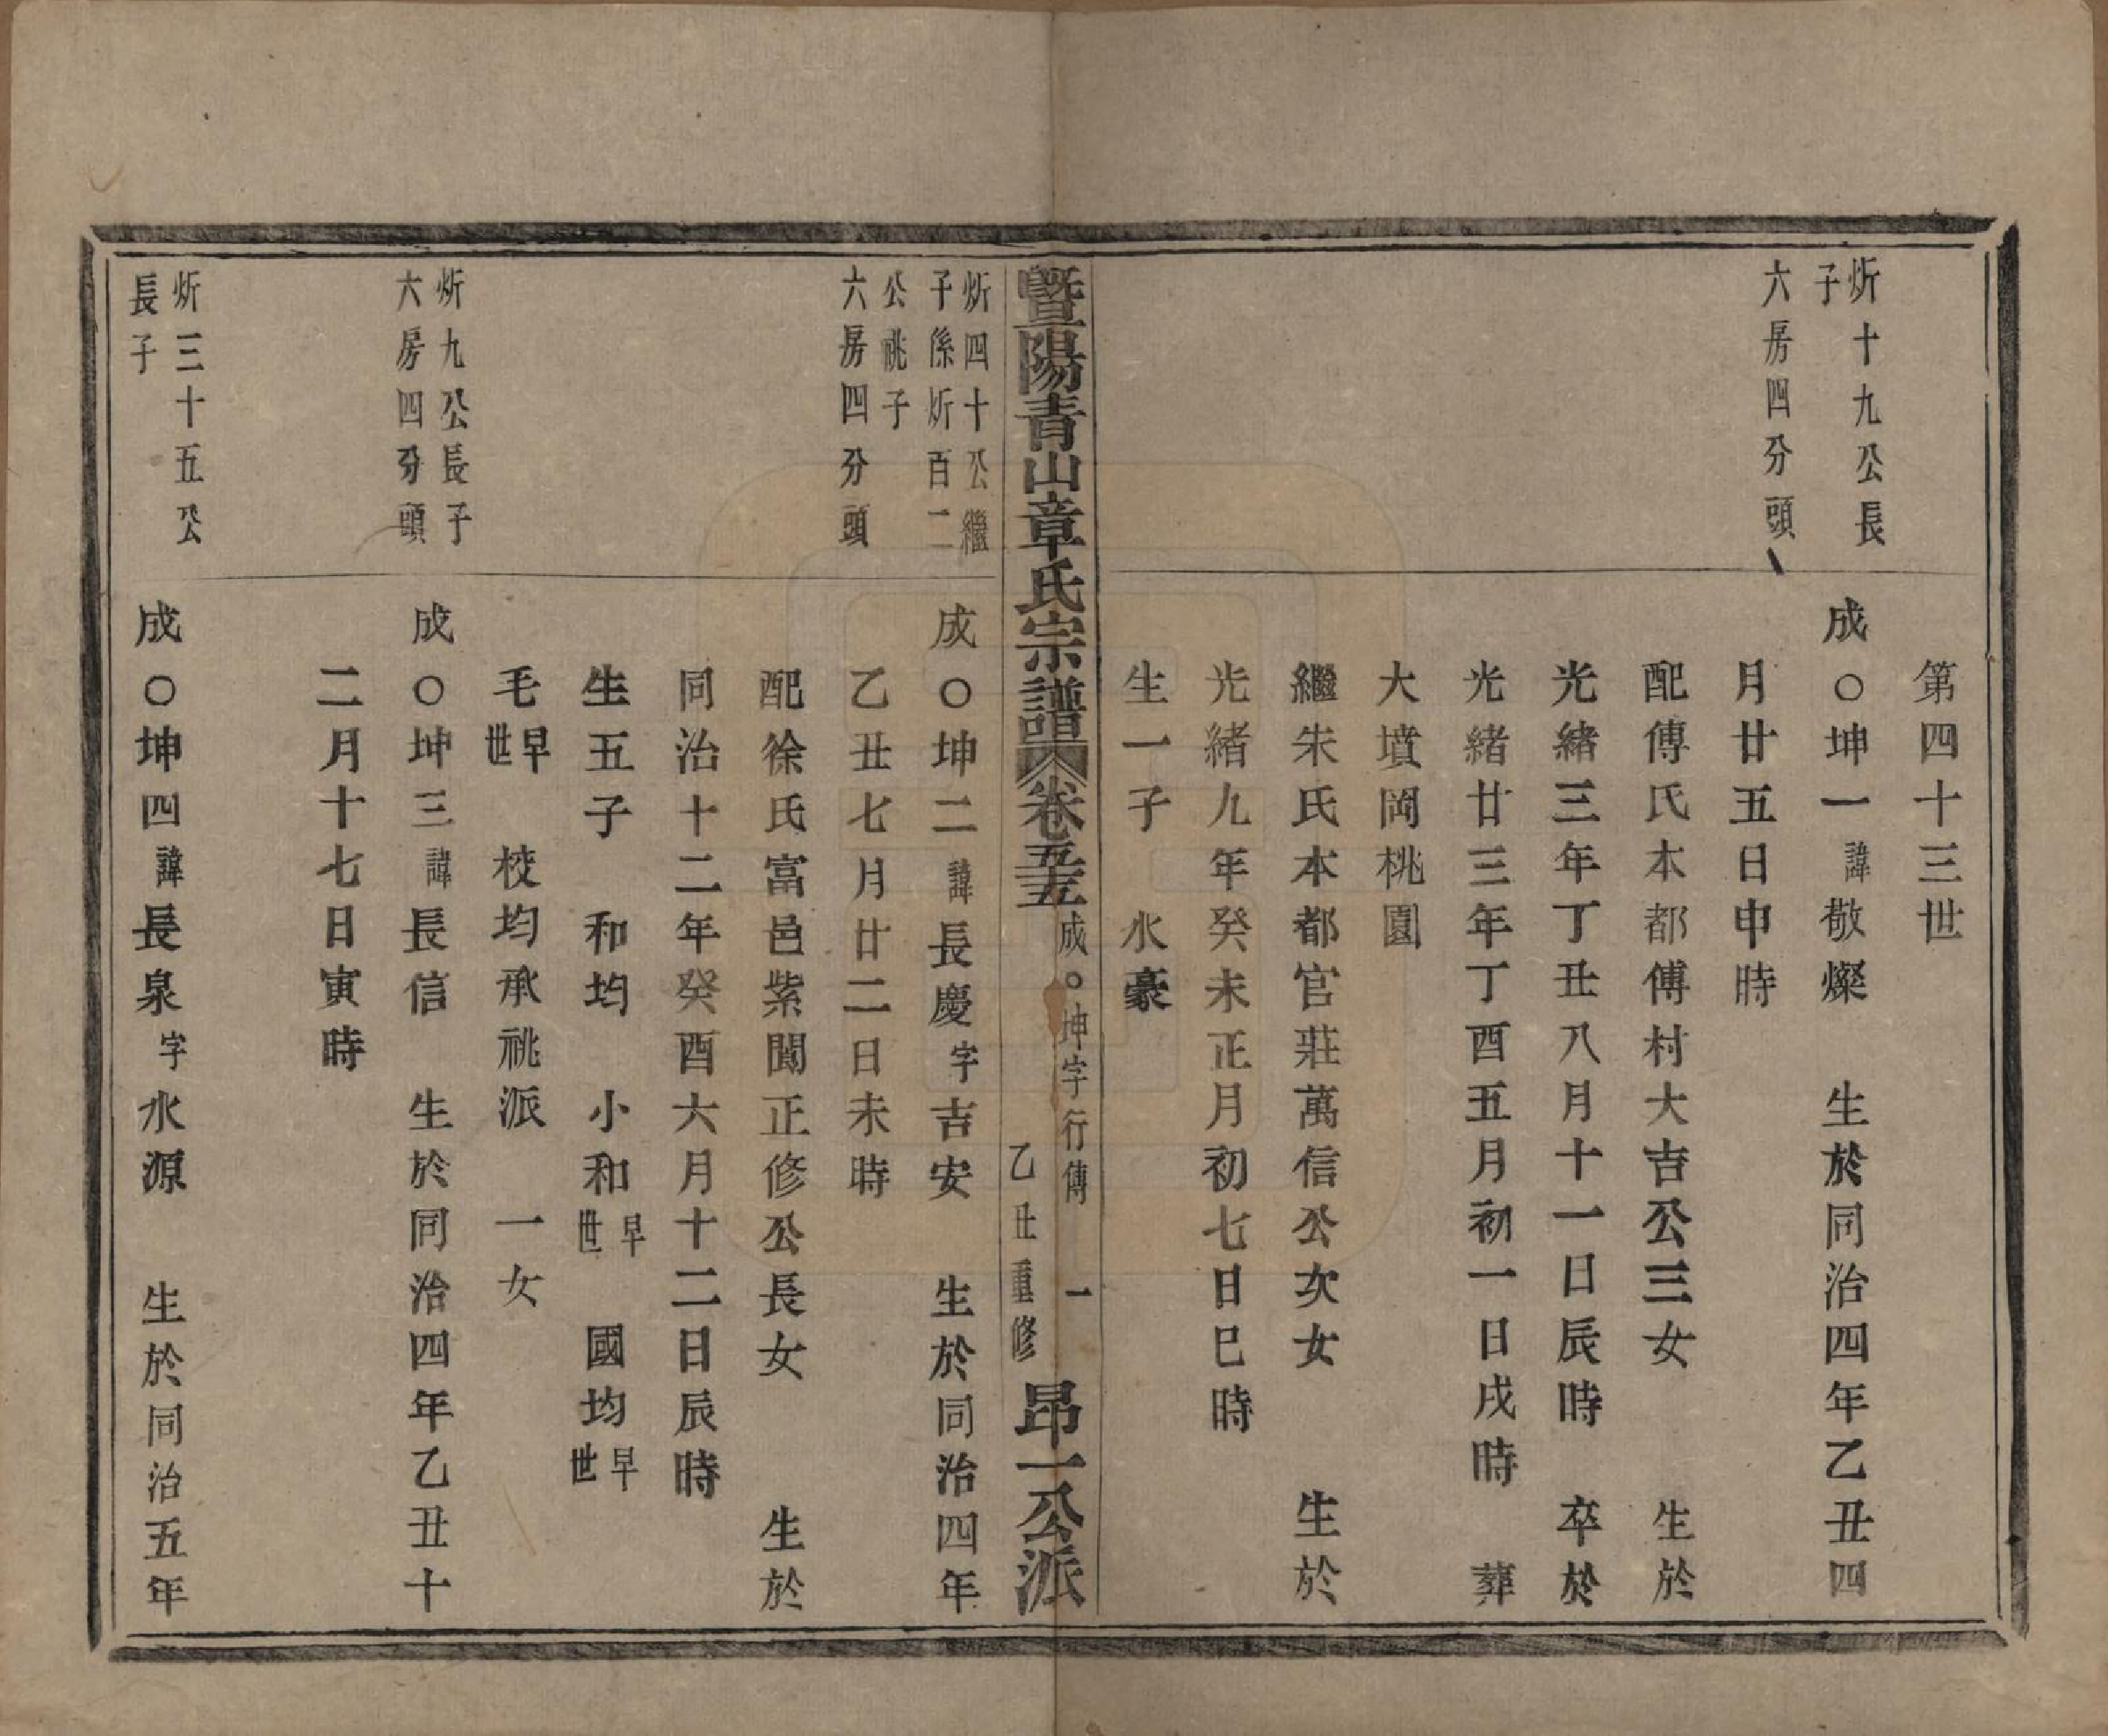 第四十三世
炘十九公長
子
六房四分頭
成〇坤一諱敬燦　生於同治四年乙丑四
月廿五日申時
配傅氏本都傅村大吉公三女　生於
光緒三年丁丑八月十一日辰時　卒於
光緒廿三年丁酉五月初一日戌時　葬
大墳岡桃園
繼朱氏本都官莊萬信公次女　生於
光緒九年癸未正月初七日巳時
生一子　水豪
暨陽青山章氏宗譜　卷五五　成〇坤字行傳　一　乙丑重修　昂一公派
炘四十公繼
子係炘百二
公祧子
六房四分頭
成〇坤二諱長慶字吉安　生於同治四年
乙丑七月廿二日未時
配徐氏富邑紫閬正修公長女　生於
同治十二年癸酉六月十二日辰時
生五子　和均　小和早世　國均早世
毛早世　校均承祧派　一女
炘九公長子
六房四分頭
成〇坤三諱長信　生於同治四年乙丑十
二月十七日寅時
炘三十五公
長子
成〇坤四諱長泉字水源　生於同治五年